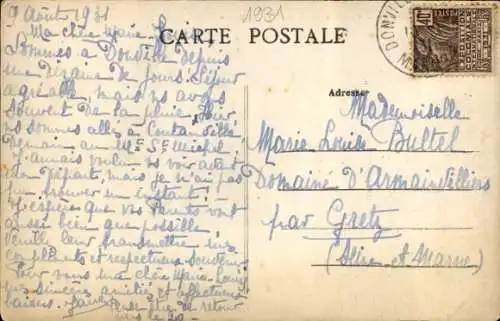 9 Août 1931
1931
CARTE POSTALE
DONVILLE
40c
POSTES
Ma chère Marie-Louise
Sommes à Donville depuis
une dizaine de jours. Séjour
agréable mais ns avons
souvent de la pluie. Hier
ns sommes allés à Coutainville
Demain au Mt St Michel
J'aurais voulu vs voir avant
mon départ, mais je n'ai pas
pu trouver un instant.
J'espère que vos Parents vont
aussi bien que possible
Veuillez leur transmettre mes
compliments et respectueux souvenirs
Pour vous ma chère Marie-Louise
mes sincères amitiés et affectueux
baisers.
être de retour
vers le 20
Adresse
Mademoiselle
Marie Louise Bultel
Domaine D'Armainvilliers
par Gretz
(Seine et Marne)